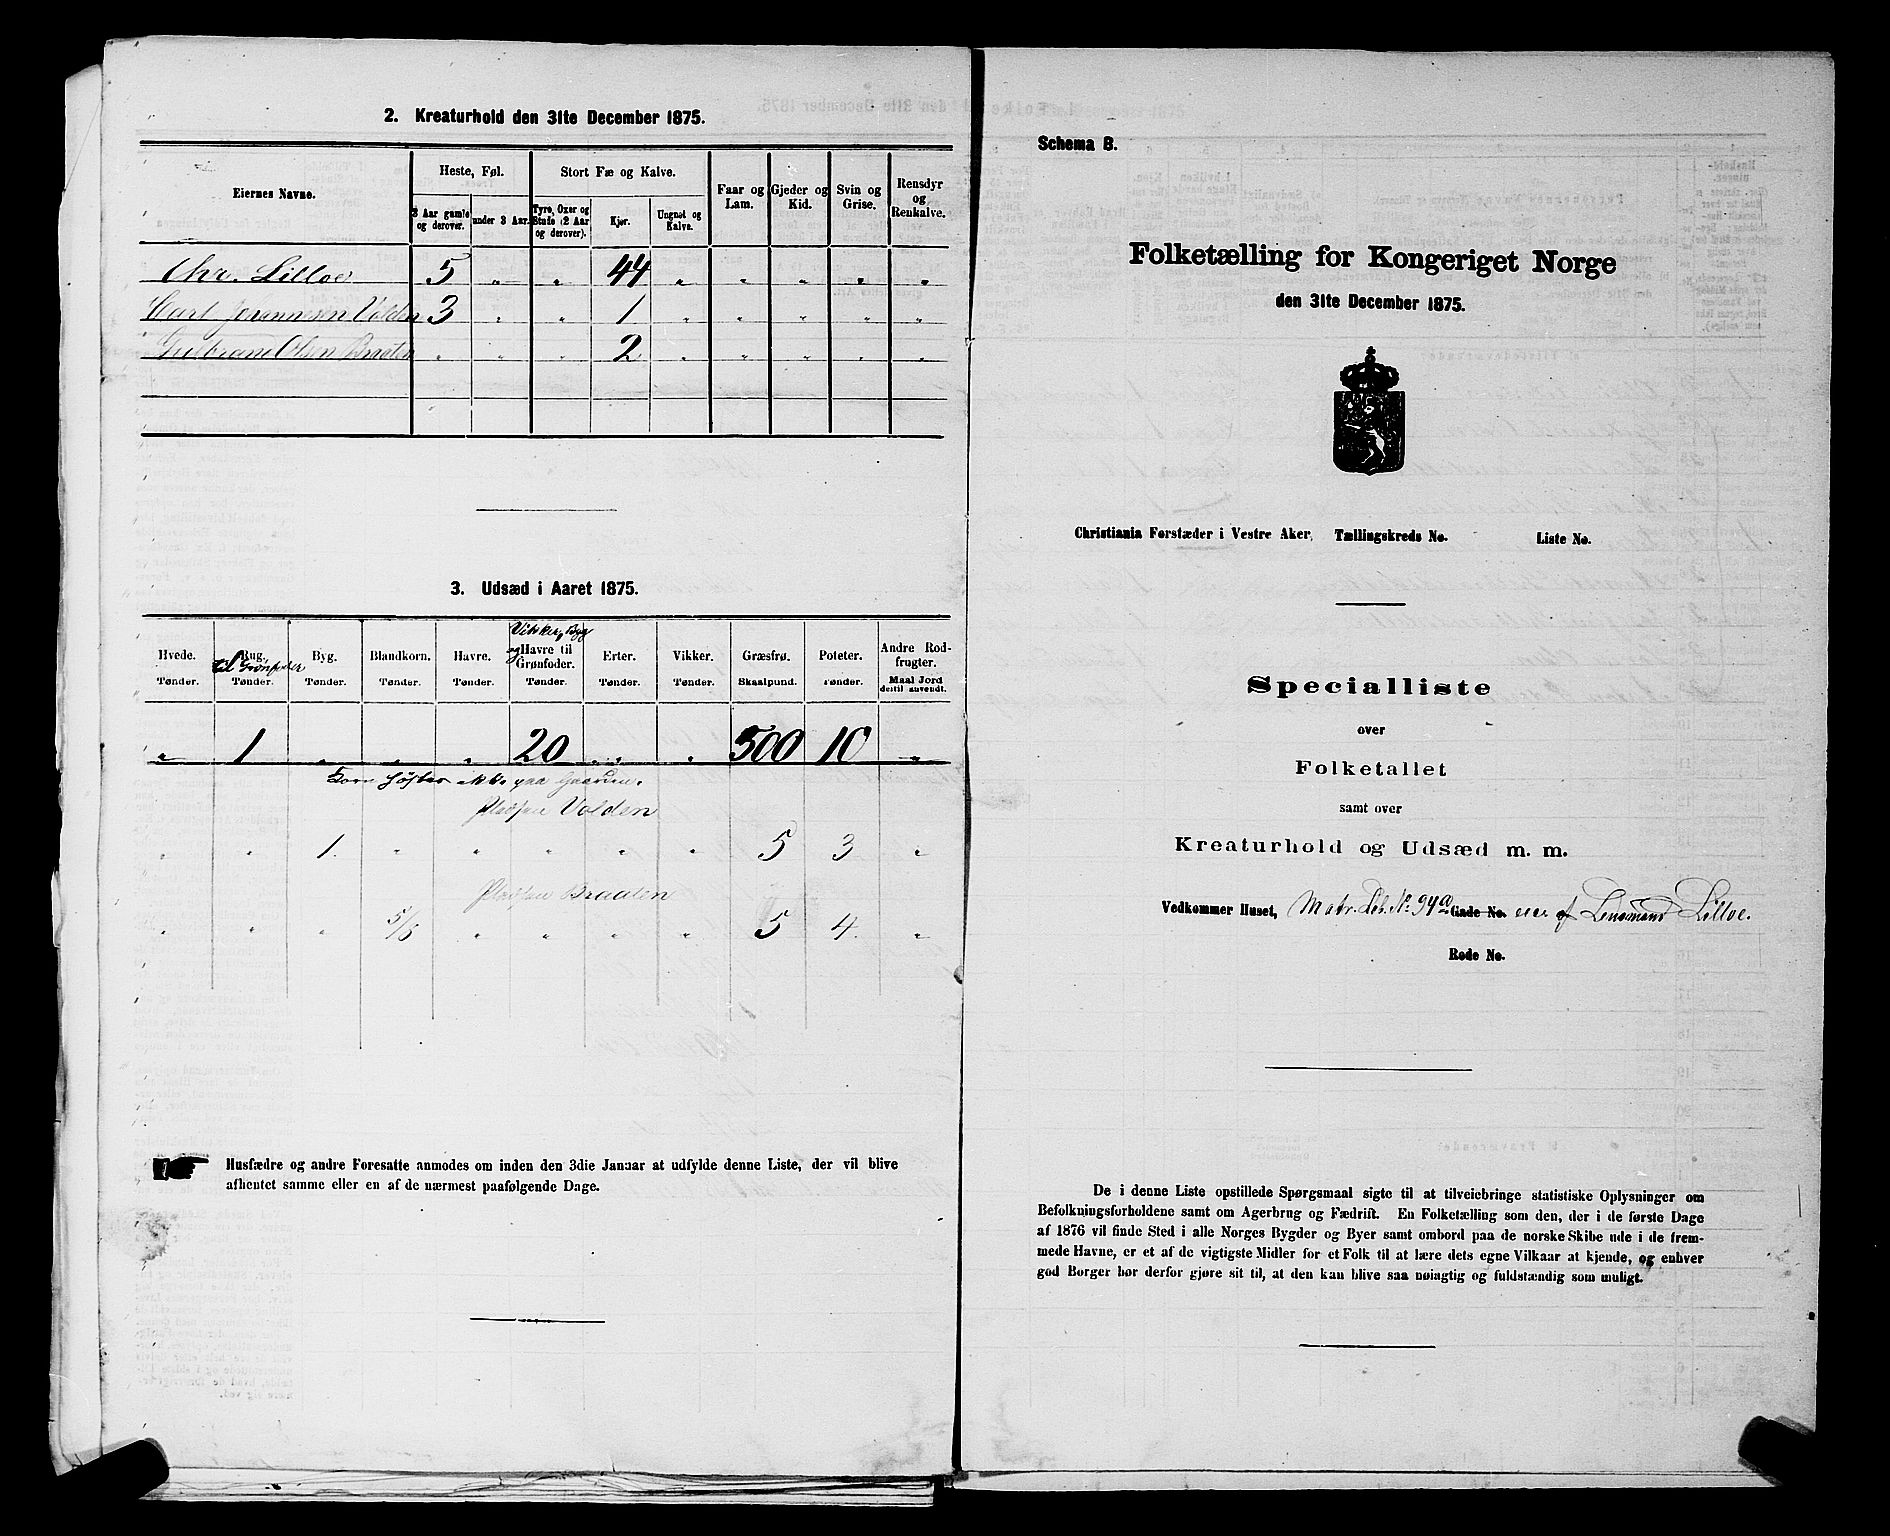 2. Kreaturhold den 31te December 1875.
Eiernes Navne.
Heste, Føl.
3 Aar gamle og derover.
under 3 Aar.
Stort Fæ og Kalve.
Tyre, Oxer og Stude (2 Aar og derover).
Kjør.
Ungnøt og Kalve.
Faar og Lam.
Gjeder og Kid.
Svin og Grise.
Rensdyr og Renkalve.
Chr. Lilloe 5 " " 44 " " " " "
Carl Johannsen Volden 3 " " 1 " " " " "
Gulbrand Olsen Braaten " " " 2 " " " " "
3. Udsæd i Aaret 1875.
Hvede. Tønder.
Rug, til Grønfoder Tønder.
Byg. Tønder.
Blandkorn. Tønder.
Havre. Tønder.
Vikker, Byg og Havre til Grønfoder. Tønder.
Erter. Tønder.
Vikker. Tønder.
Græsfrø. Skaalpund.
Poteter. Tønder.
Andre Rodfrugter. Maal Jord dertil anvendt.
" 1 " " " 20 " " 500 10 "
Korn høstes ikke paa Gaarden.
Pladsen Volden
" " 1. " " " " " 5 3 "
Pladsen Braaten
" " " 5/8 " " " " 5 4. "
Husfædre og andre Foresatte anmodes om inden den 3die Januar at udfylde denne Liste, der vil blive
afhentet samme eller en af de nærmest paafølgende Dage.
Schema B.
Folketælling for Kongeriget Norge
den 31te December 1875.
Christiania Forstæder i Vestre Aker, Tællingskreds No. Liste No.
Specialliste
over
Folketallet
samt over
Kreaturhold og Udsæd m. m.
Vedkommer Huset, Matr. Lb. No 94a Gade No. eier af Lensmand Lilloe.
Rode No.
De i denne Liste opstillede Spørgsmaal sigte til at tilveiebringe statistiske Oplysninger om
Befolkningsforholdene samt om Agerbrug og Fædrift. En Folketælling som den, der i de første Dage
af 1876 vil finde Sted i alle Norges Bygder og Byer samt ombord paa de norske Skibe ude i de frem-
mede Havne, er et af de vigtigste Midler for et Folk til at lære dets egne Vilkaar at kjende, og enhver
god Borger bør derfor gjøre sit til, at den kan blive saa nøiagtig og fuldstændig som muligt.